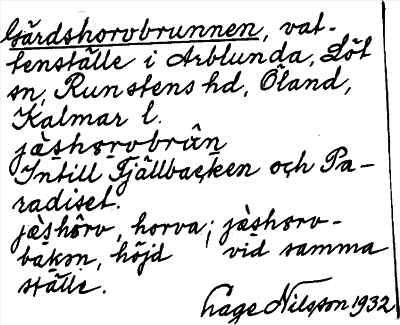 Gärdshorvbrunnen, vat-
tenställe i Arblunda, Löt
sn, Runstens hd, Öland,
Kalmar l.
jàs̱họrvobrûn̲
Intill Tjällbacken och Pa-
radiset.
jàs̱hôrv, horva; jàs̱họrv-
bakọn, höjd vid samma
ställe.
Lage Nilsson 1932